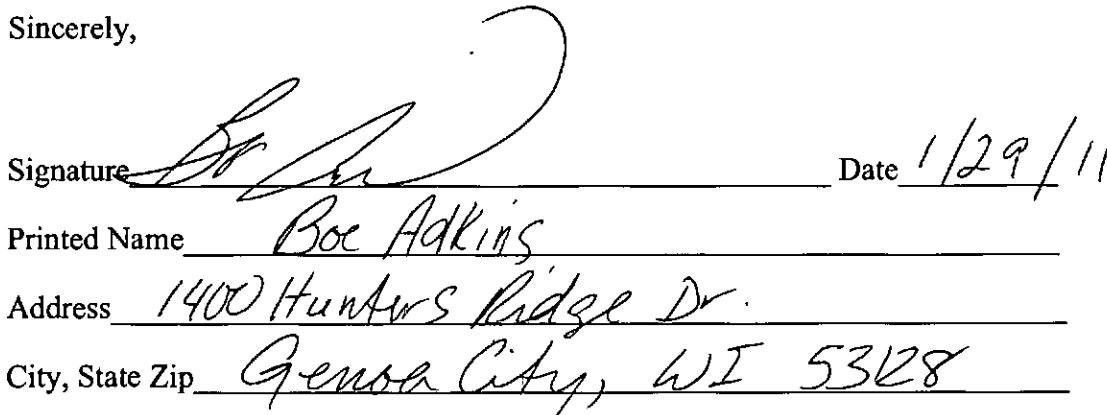 Sincerely,
Signature Date 1/29/11
Printed Name Boe Adkins
Address 1400 Hunters Ridge Dr.
City, State Zip Genoa City, WI 53128